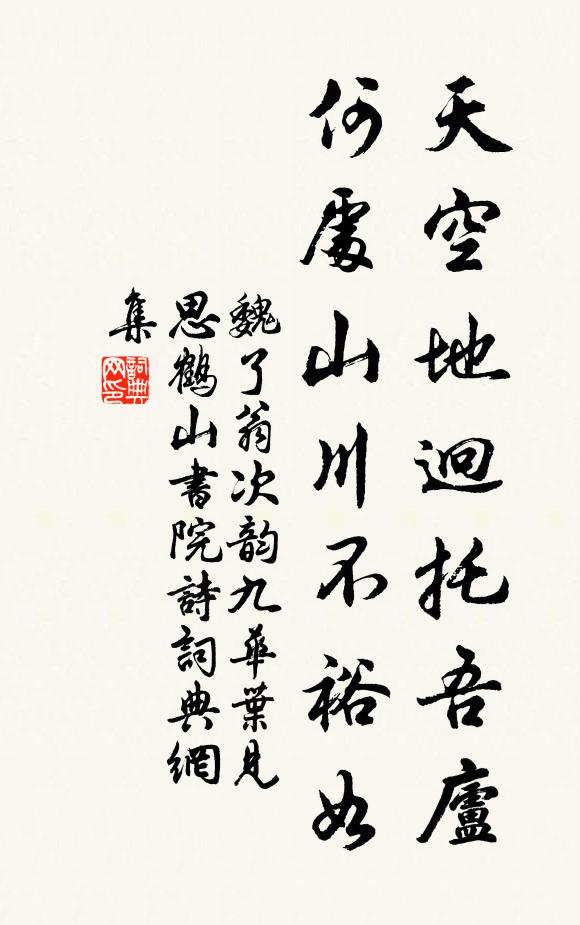 天空地迴托吾廬
何處山川不裕如
魏了翁次韵九華葉見
思鶴山書院詩詞典網
集
詞典网印